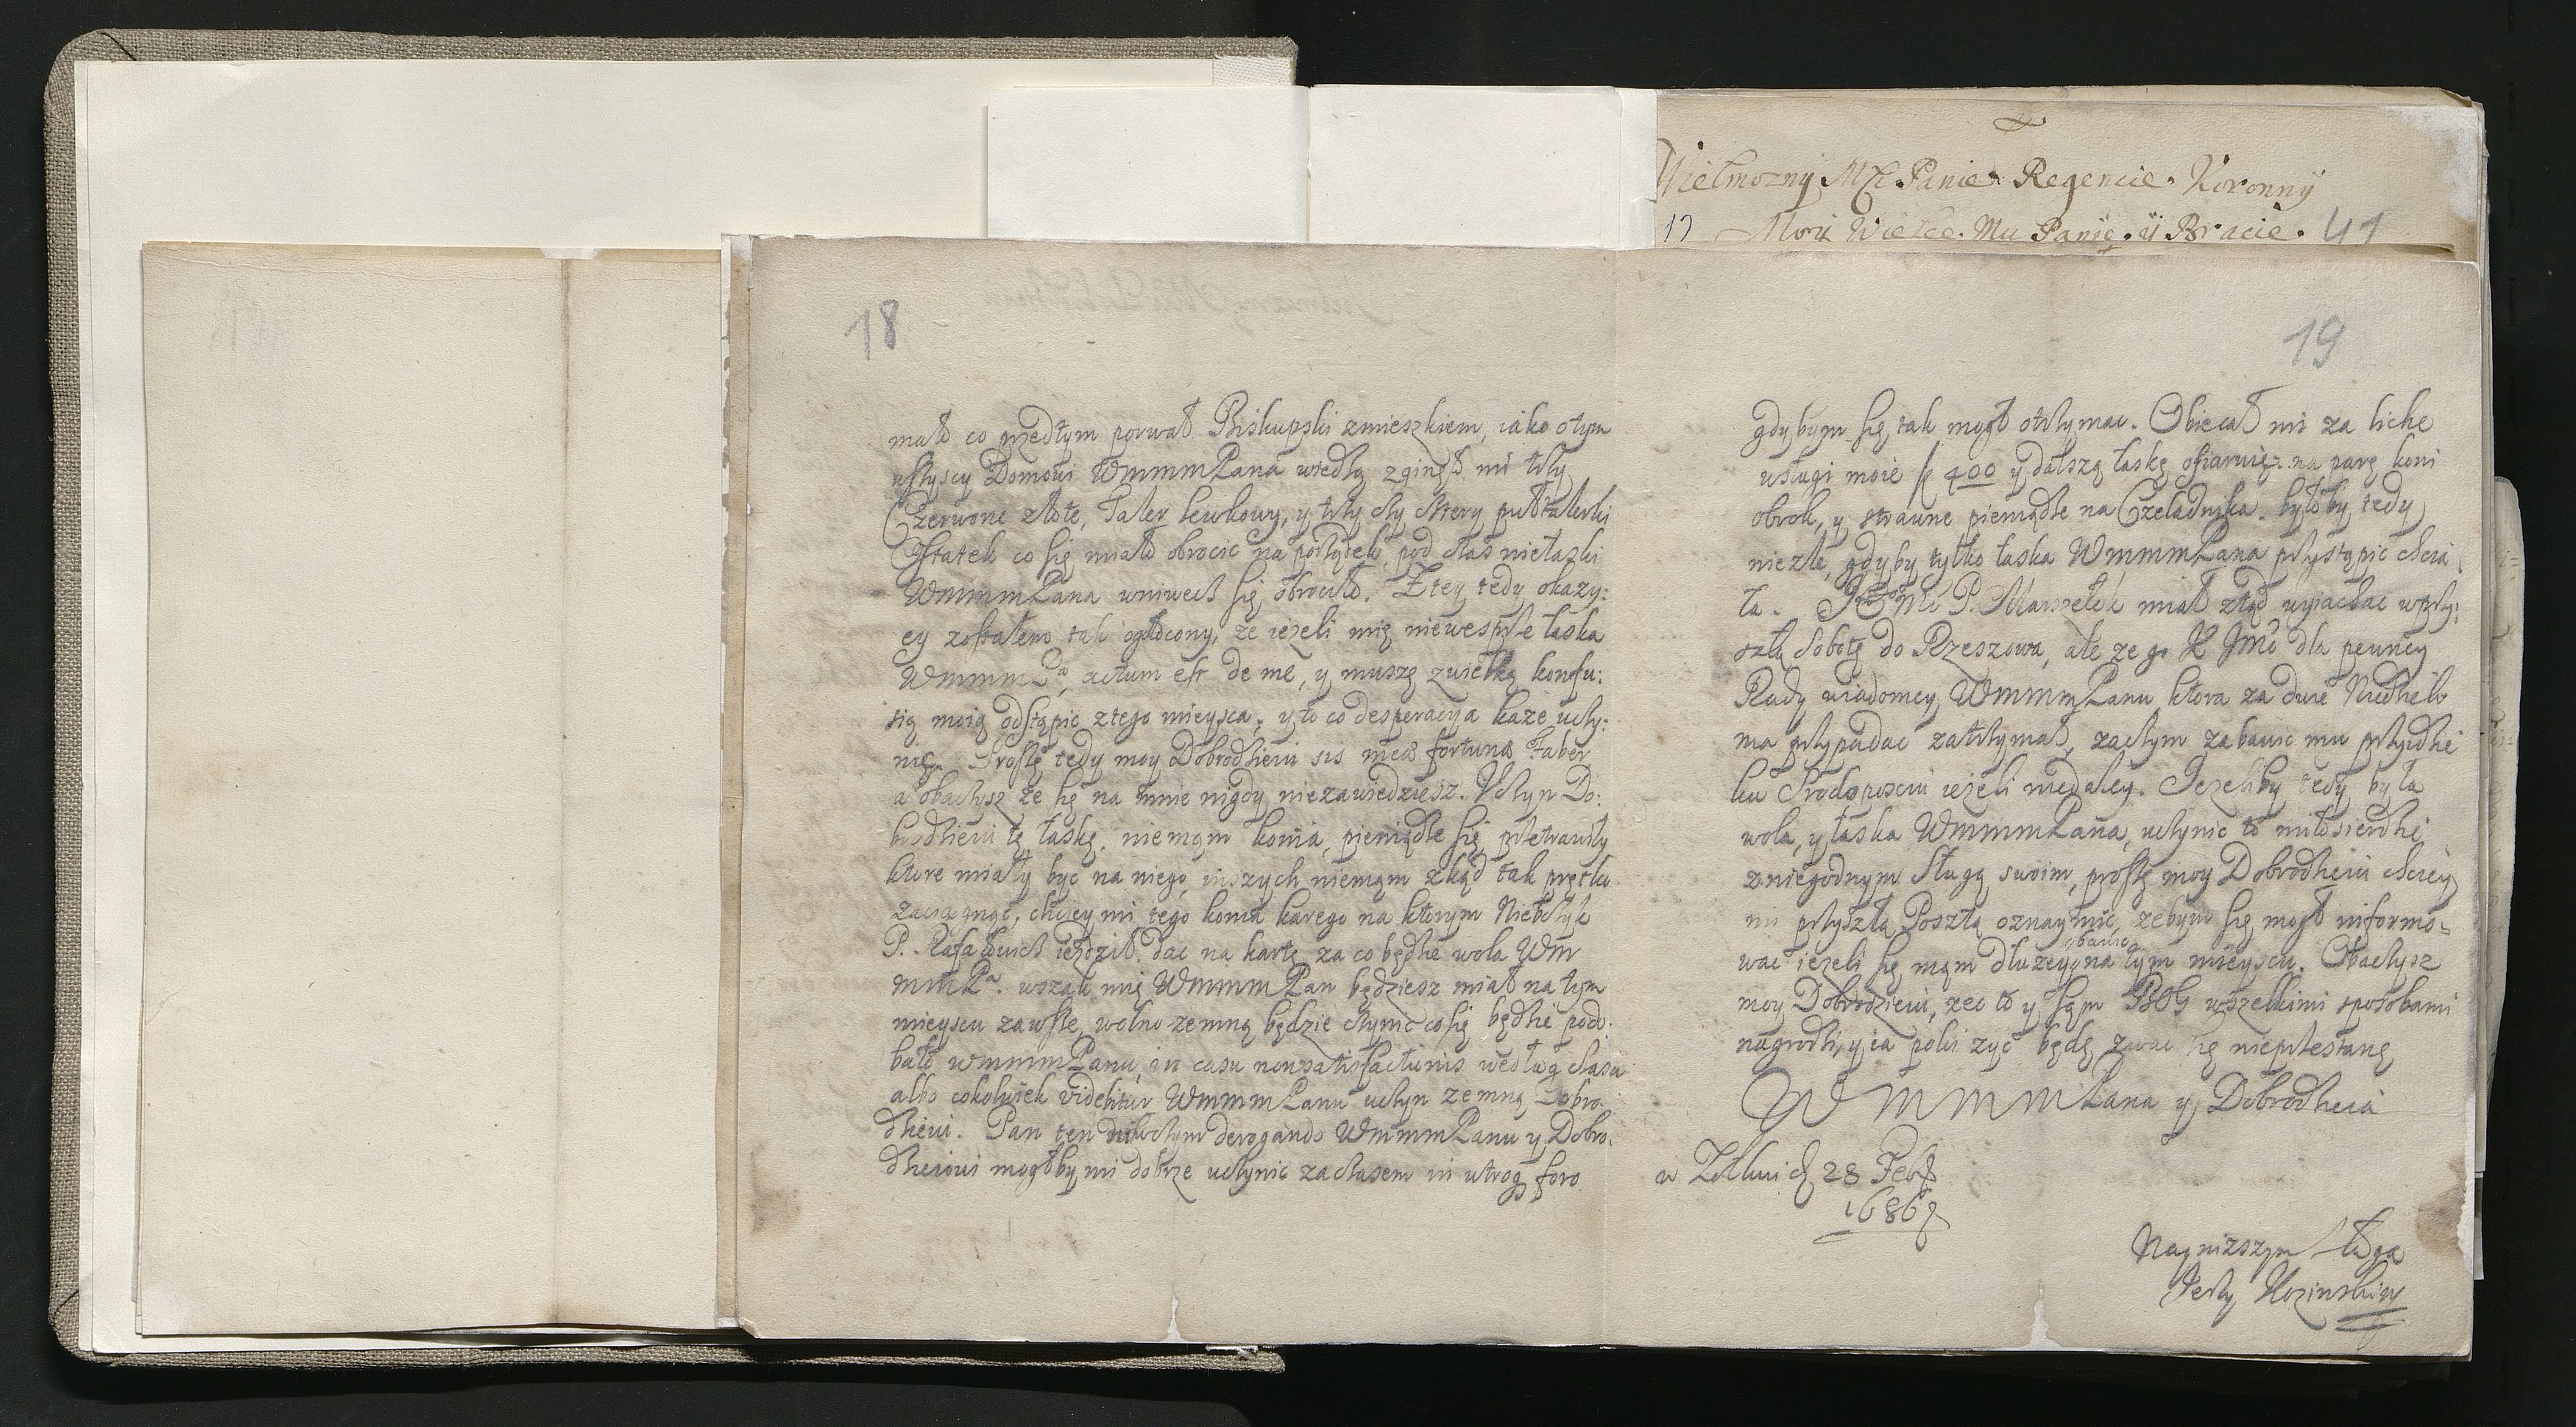 Wielmozny Mći Panie Regencie Koronny
17 Moy Wielce Mu Panie y Bracie. 41
18
mało co przedtym porwał Biskupski zmieszkiem, iako o tym
wszyscy Domowi WmmmPana wiedzą zginęło mi trzy
Czerwone złote, Taler lewkowy, y trzy czy cztery pułtalerki
Ostatek co się miało obrocic na pozytek, pod czas niełaski
WmmmPana wniwecz się obrociło. Z tey tedy okazy:
ey zostałem tak ogołocony, ze iezeli mię niewesprze łaska
WmmmPa, actum est de me, y muszę zwielką konfu:
sią moią odstąpic ztego mieysca, y to co desperacya kaze uczy:
nię. Proszę tedy moy Dobrodzieiu sis meæ fortunæ Faber
a obaczysz ze się na mnie nigdy niezawiedziesz. Uczyn Do:
brodzieiu tę łaskę, niemąm konia, pieniądze się przetrawiły
ktore miały byc na niego, inszych niemąm zkąd tak prętko
zaciągnąc, chciey mi tego konia karego na ktorym Nieboszyk
P. Rafałowicz iezdził, dac na kartę za co będzie wola Wm
mmPa. wszak mię WmmmPan będziesz miał na tym
mieyscu zawsze, wolno zemną będzie czynic co się będzie podo:
bało WmmmPanu, in casu nonsatisfactionis według czasu
albo cokolwiek videbitur WmmmPanu uczyn zemną Dobro
dzieiu. Pan ten derogando WmmmPanu y Dobro:
dzieiowi mogłby mi dobrze uczynic zaczasem in utroq foro
19
gdybym się tak mogł otrzymac. Obiecał mi za liche
usługi moie f 400 y dalszą łaskę ofiaruię, na parę koni
obrok, y strawne pieniądze na Czeladnika. byłoby tedy
niezle, gdyby tylko łaska WmmmPana przystąpic chcia
ła. Jmć P. Marszełek miał ztąd wyiachac w przy:
szłą Sobotę do Rzeszowa, ale ze go K Jmć dla pewney
Rady wiadomey WmmmPanu ktora za dwie Niedziele
ma przypadac zatrzymał, zaczym zabawic mu przyidzie
ku Srodoposciu iezeli niedaley. Jezeliby tedy była
wola, y łaska WmmmPana, uczynic to miłosierdzie
zniegodnym Sługą swoim, proszę moy Dobrodzieiu chciey
mi przyszłą Posztą oznaymic, zebym się mogł informo-
wac iezeli się mąm dłuzey bawic na tym mieyscu. Obaczysz
moy Dobrodzieiu, zec to y sąm BOG wszelkimi sposobami
nagrodzi, y ia poki zyć będę zwac się nieprzestanę
WMMMPana y Dobrodzieia
w Zołkwi d 28 Febr
1686
Naynizszym Sługą
Jerzy Kozinski